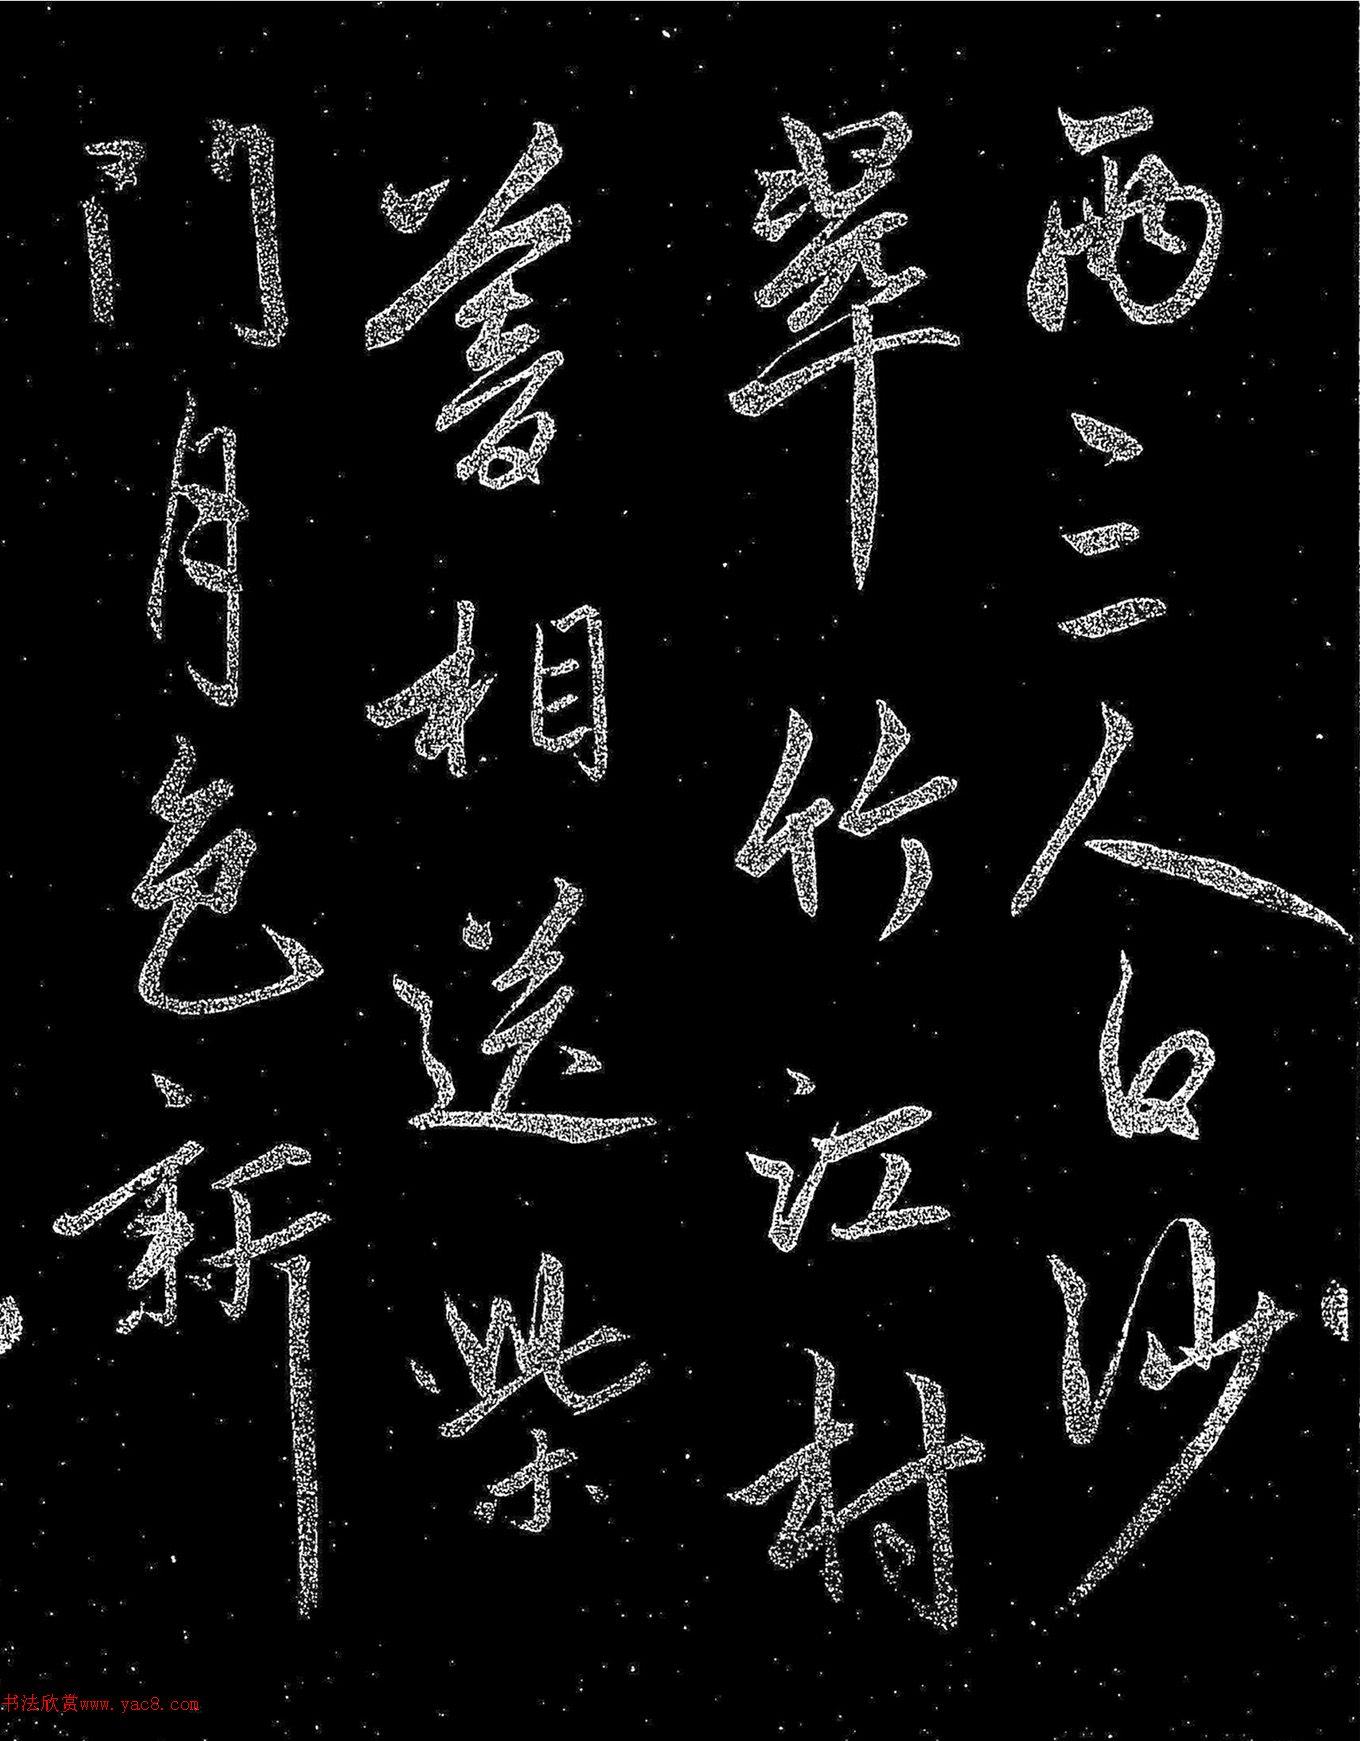 兩三人白沙
翠竹江村
暮相送柴
門月色新
书法欣赏www.yac8.com